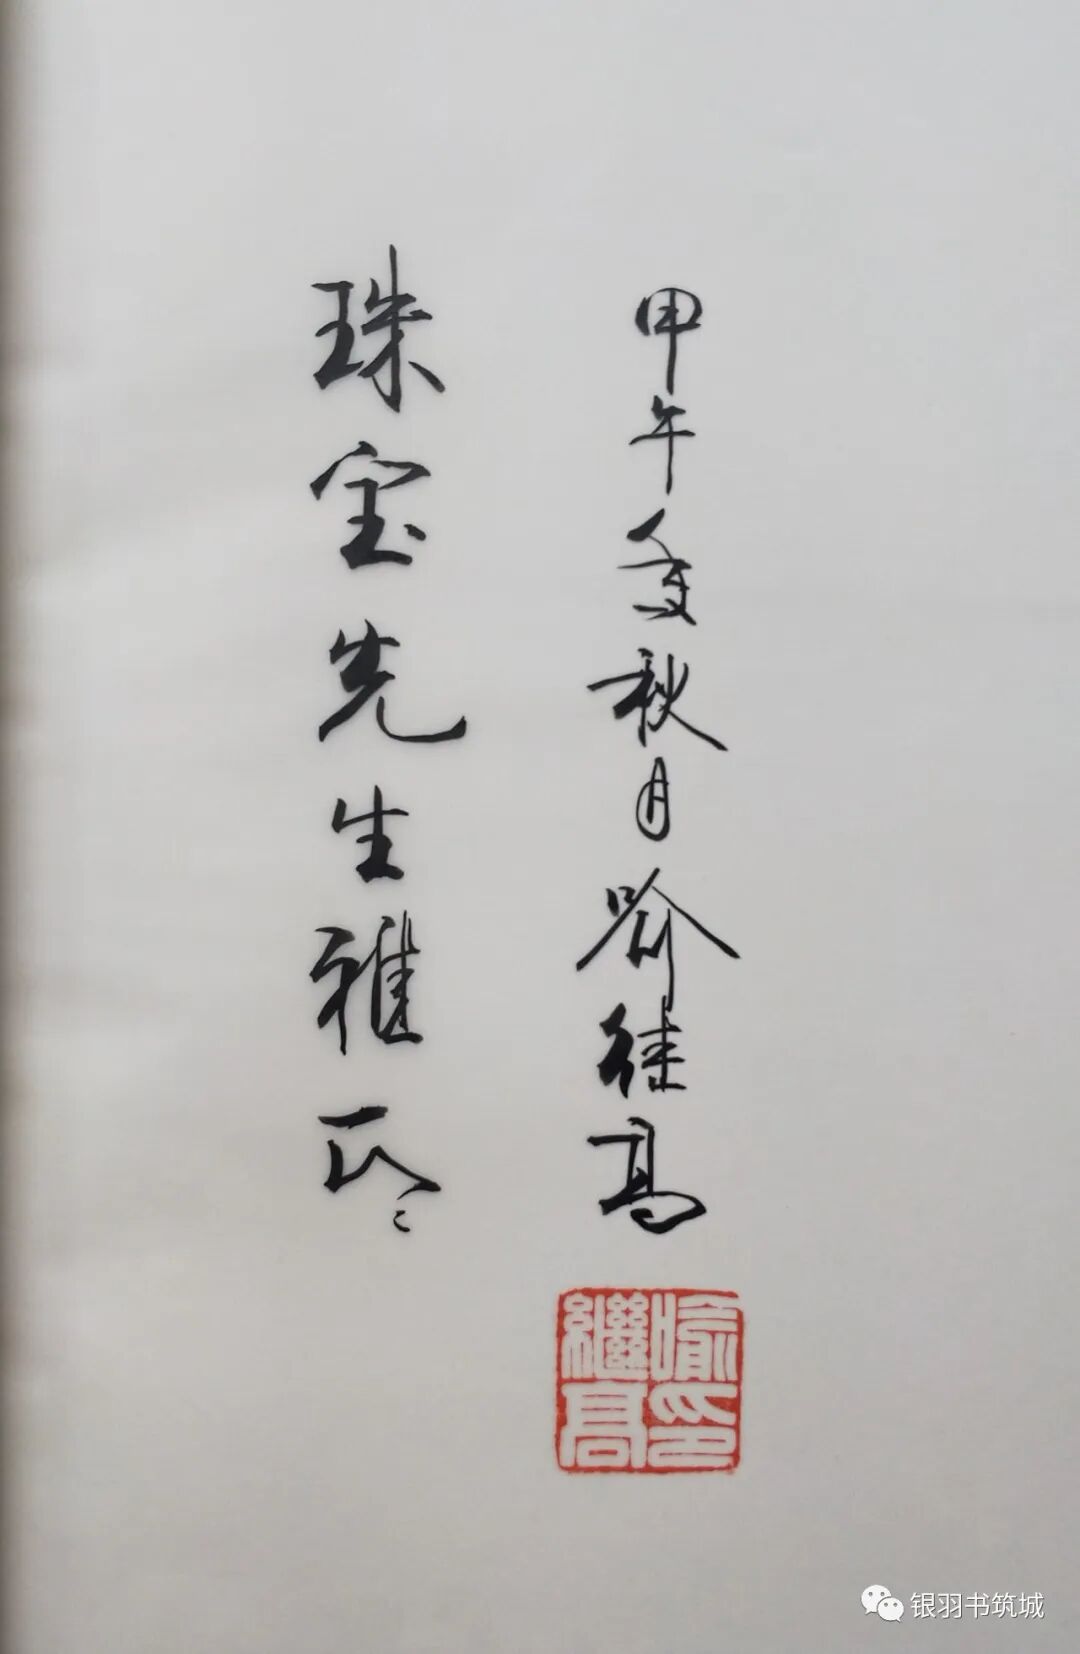 珠宝先生雅正
甲午秋月喻继高
喻印
繼高
银羽书筑城